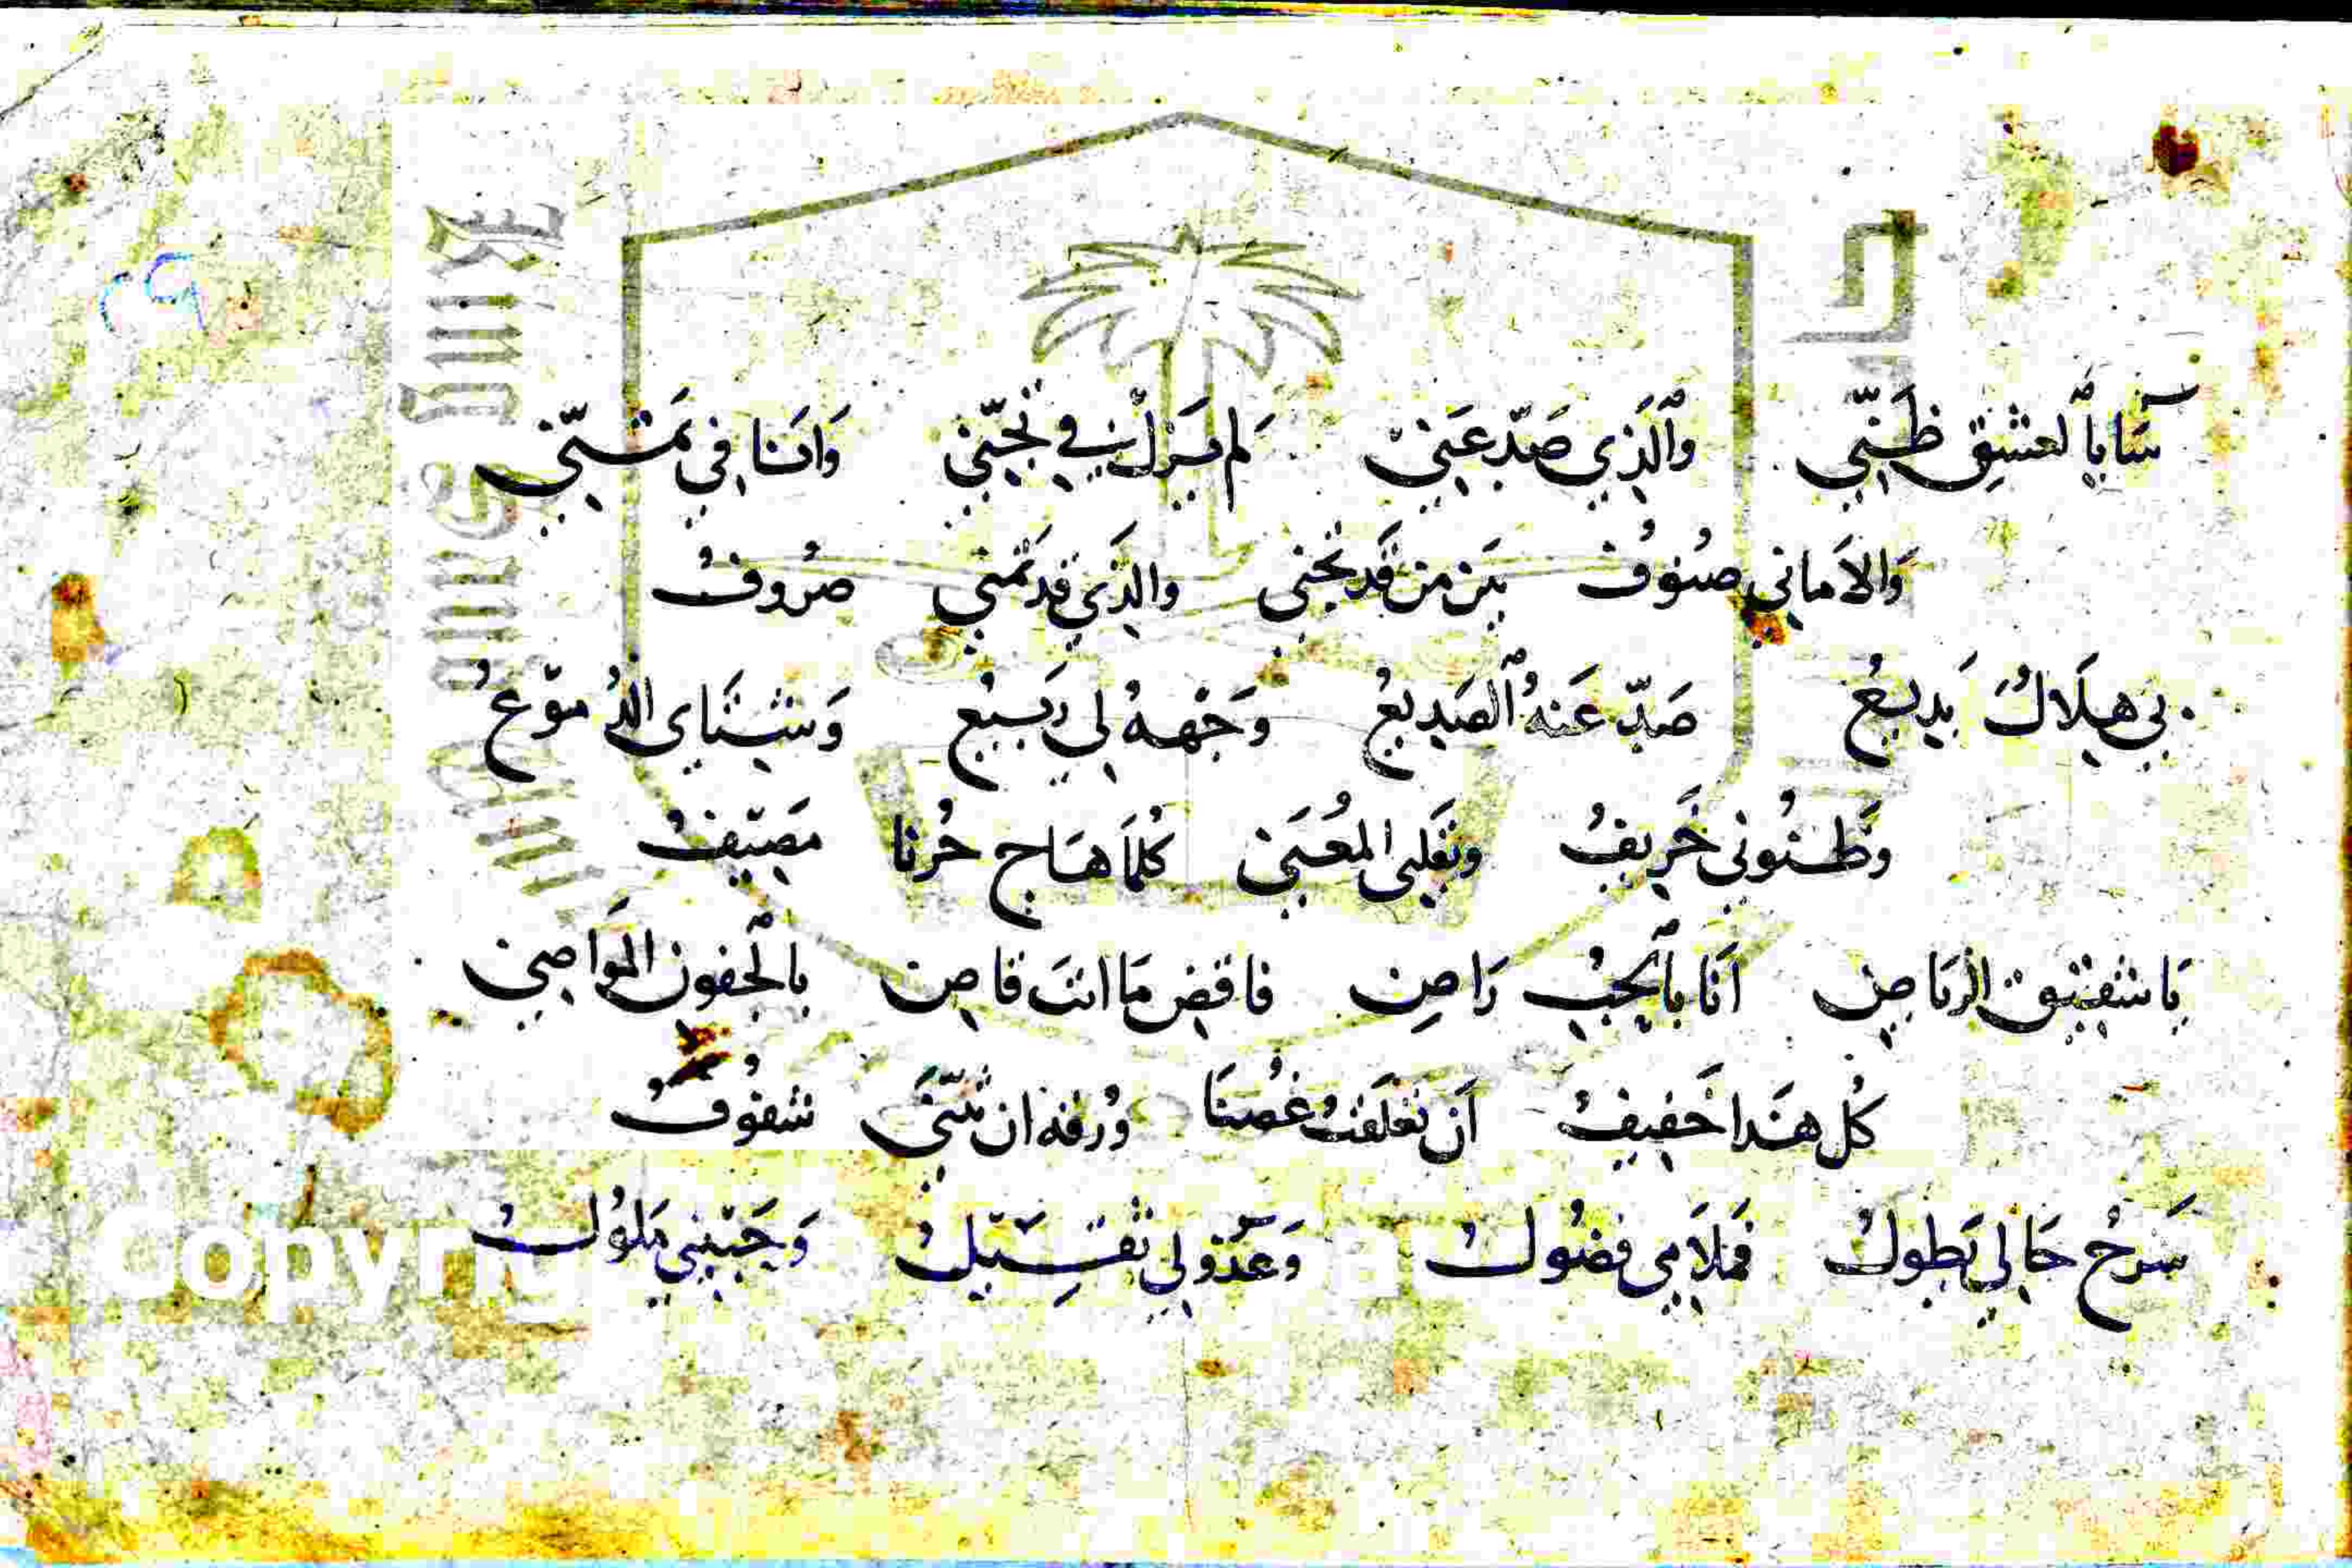 ساءَ بٱلعشِق ظَنّي وٱلَّذِي صَدّ عَني لم يَزلْ في تجنّي وَانَا في تمَنّي
وَالاَماني صنُوُف بَين من قَد تجَنى والذَي قد تمَني صرُوفُ
بي هِلاَلُ بَدِيعُ صَدّ عَنهُ ٱلصَدِيعُ وَجْههُ لي رَبيعُ وَشتَاى الدُموُعُ
وَظنُوني خَرِيفُ وبَقلبى المعُنَي كُلمَا هَاج حُزنا مصَيّفُ
يَا شقيق الريَاضِ اَنَا بٱلحُبِ رَاضِ فاقضِ مَا انتَ قاضِ بٱلجفون المَوَاضِي
كُل هَذا خَفيفُ اَن تعَلقتُ غصُنَا وُرقه ان تثَنّي شفوُفُ
سَرحُ حَالي يَطولُ فمَلاَمي فضوُلُ وَعَذولي ثَقِيلُ وَحَبيبي مَلوُلُ
٢٩
Copyri